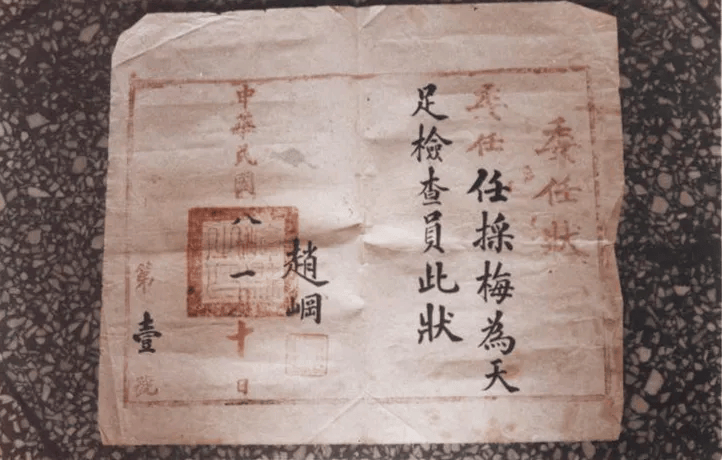 委任狀
委任任採梅為天
足檢查員此狀
趙岡
中華民國八 一 十日
第壹號